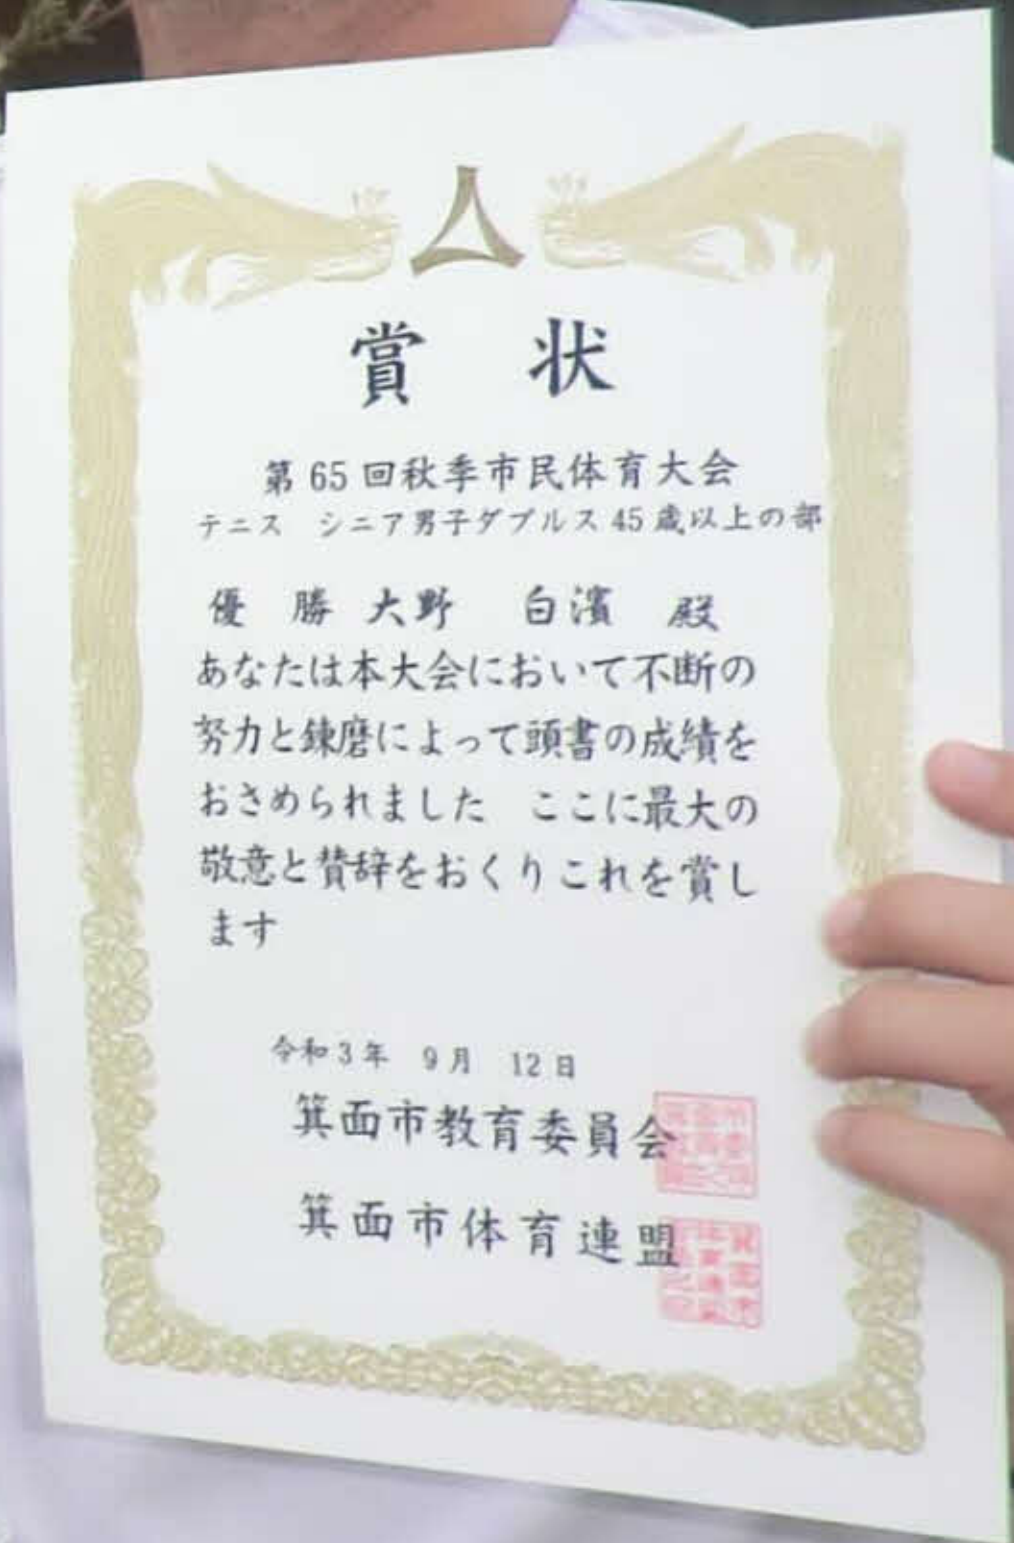 賞 状
第65回秋季市民体育大会
テニス シニア男子ダブルス45歳以上の部
優 勝 大野 白濱 殿
あなたは本大会において不断の
努力と錬磨によって頭書の成績を
おさめられました ここに最大の
敬意と賛辞をおくりこれを賞し
ます
令和3年 9月 12日
箕面市教育委員会
箕面市体育連盟